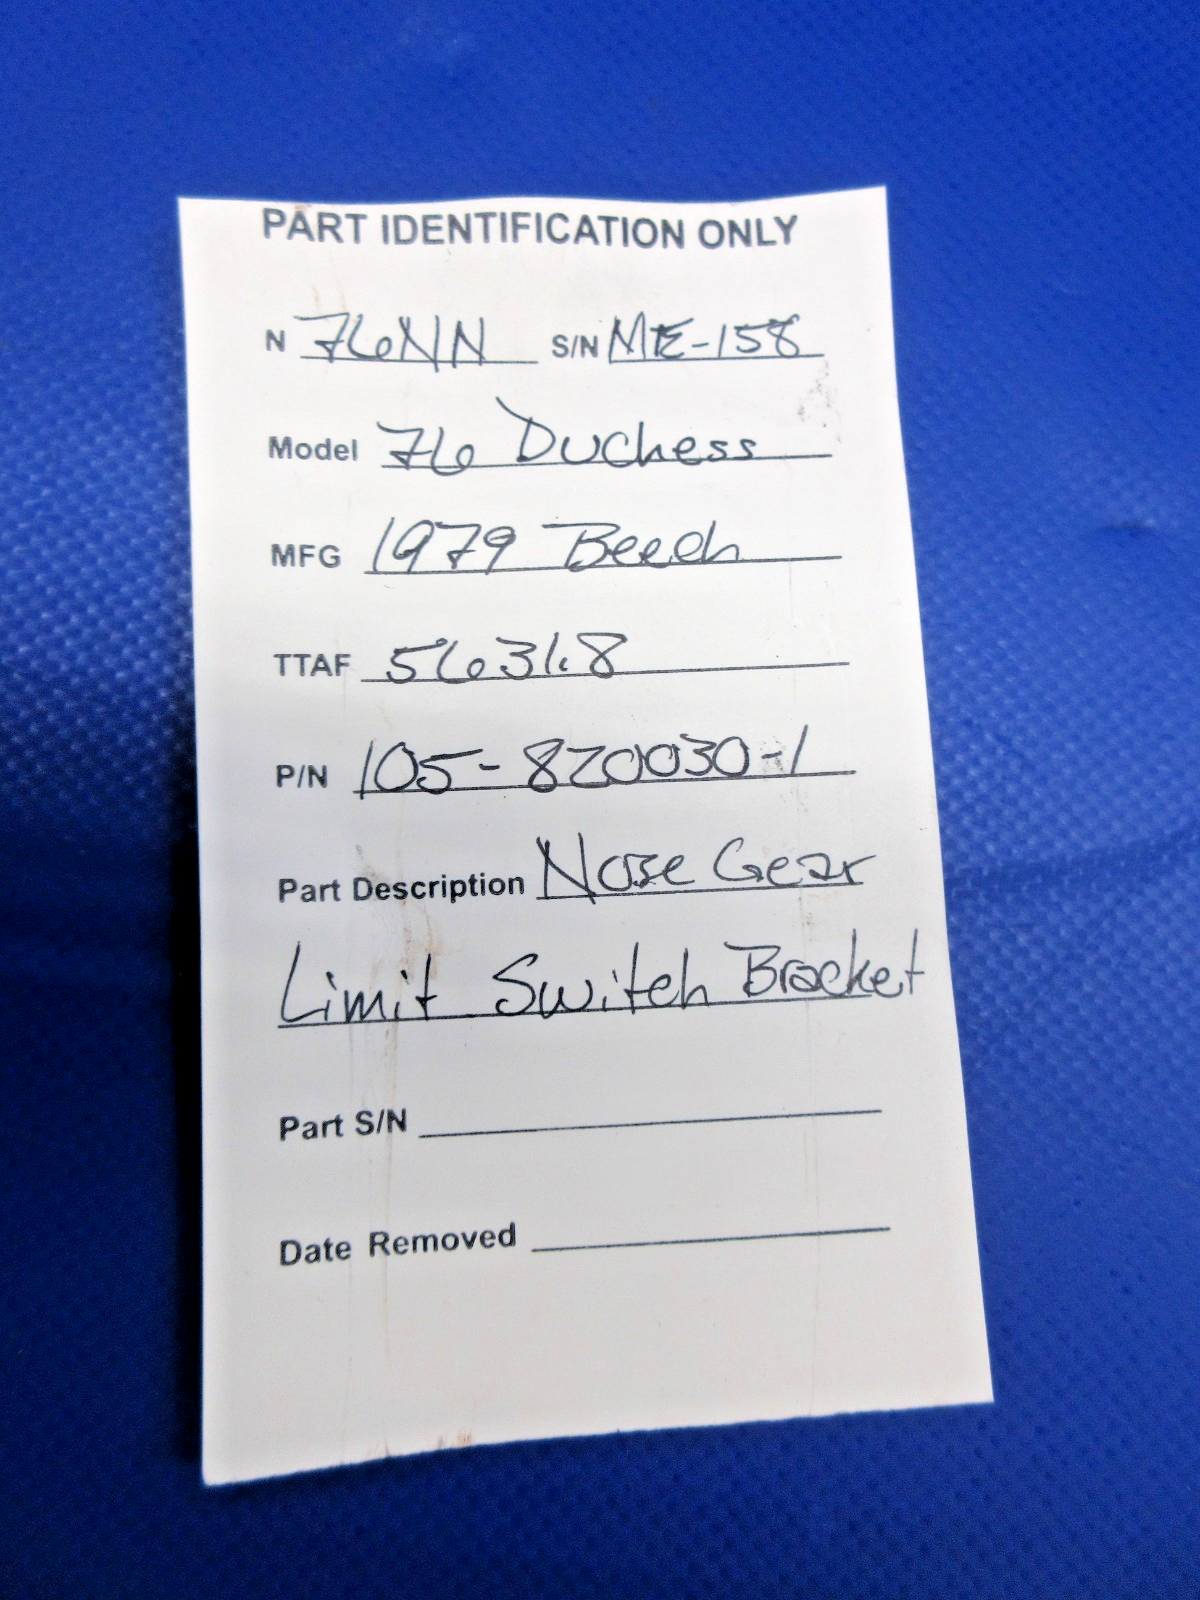 PART IDENTIFICATION ONLY
N 76NN S/N ME-158
Model 76 Duchess
MFG 1979 Beech
TTAF 5631.8
P/N 105-820030-1
Part Description Nose Gear
Limit Switch Bracket
Part S/N
Date Removed